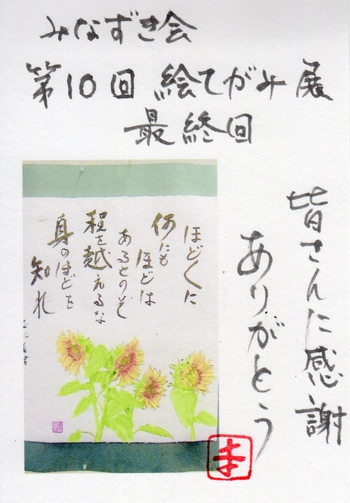 みなずき会
第10回 絵てがみ展
最終回
皆さんに感謝
ありがとう
ほどくに
何にも
ほどは
あるものぞ
程を越えるな
身のほどを
知れ